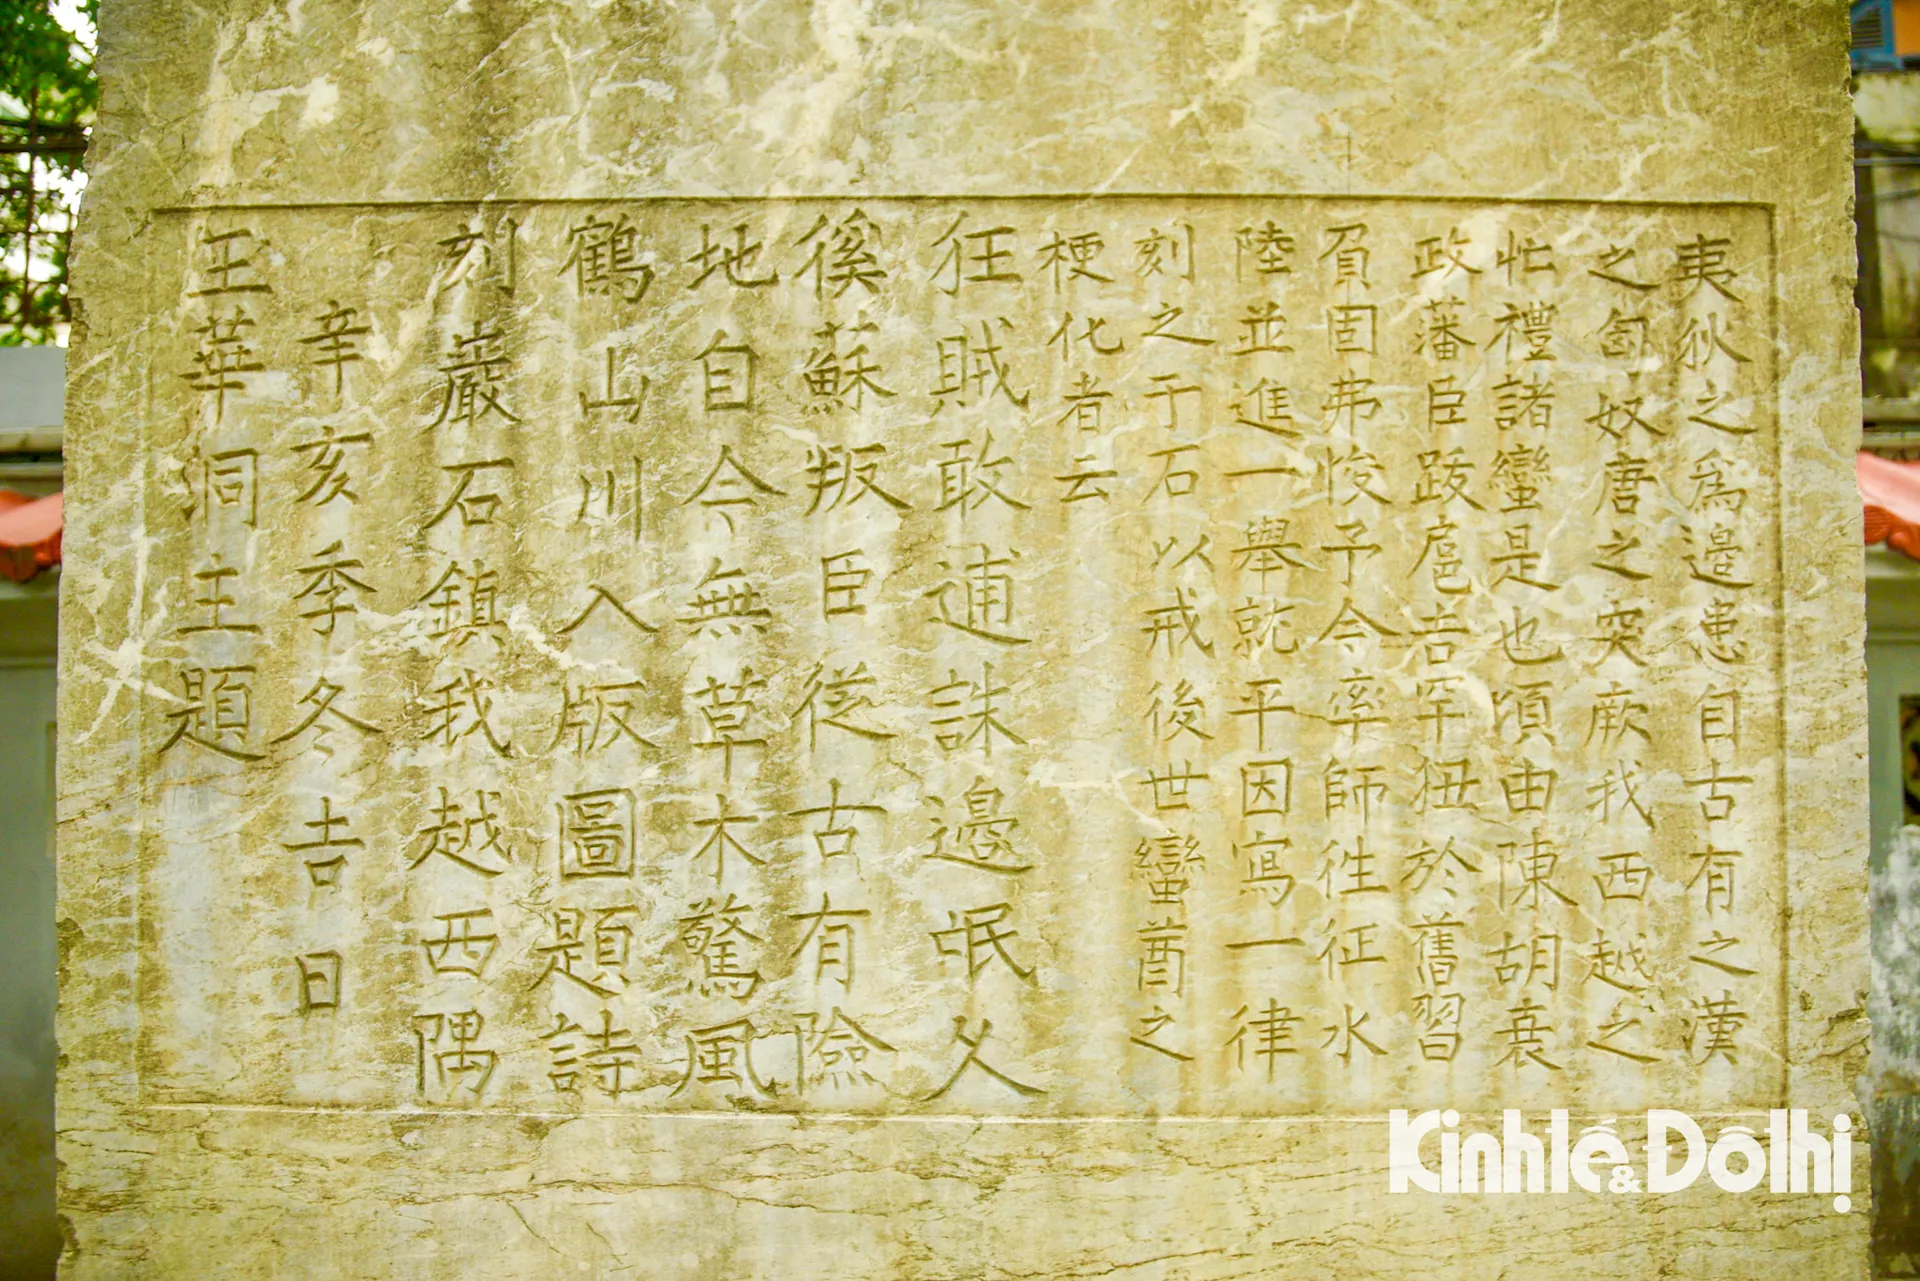 夷狄之爲邉患自古有之漢
之匈奴唐之突厥我西越之
忙禮諸蠻是也頃由陳胡衰
政藩臣跋扈吉罕狃於舊習
負固弗悛予今率師徃征水
陸並進一舉就平因寫一律
刻之于石以戒後世蠻酋之
梗化者云
狂賊敢逋誅邉氓久
徯蘇叛臣從古有險
地自今無草木驚風
鶴山川入版圖題詩
刻巖石鎮我越西隅
辛亥季冬吉日
玉華洞主題
Kinhtế & Đôthị